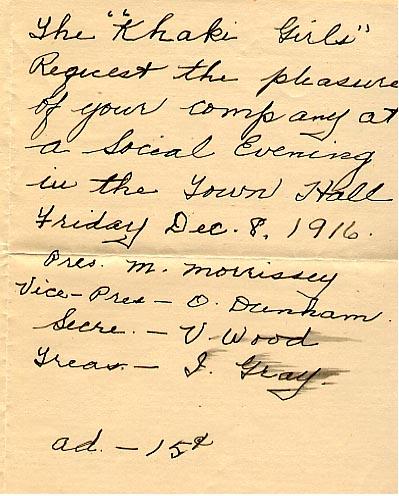 The "Khaki Girls"
Request the pleasure
of your company at
a Social Evening
in the Town Hall
Friday Dec. 8, 1916.
Pres. M. Morrissey
Vice-Pres - O. Dunham.
Secre. - V Wood
Treas. - I. Gray.
ad. - 15¢